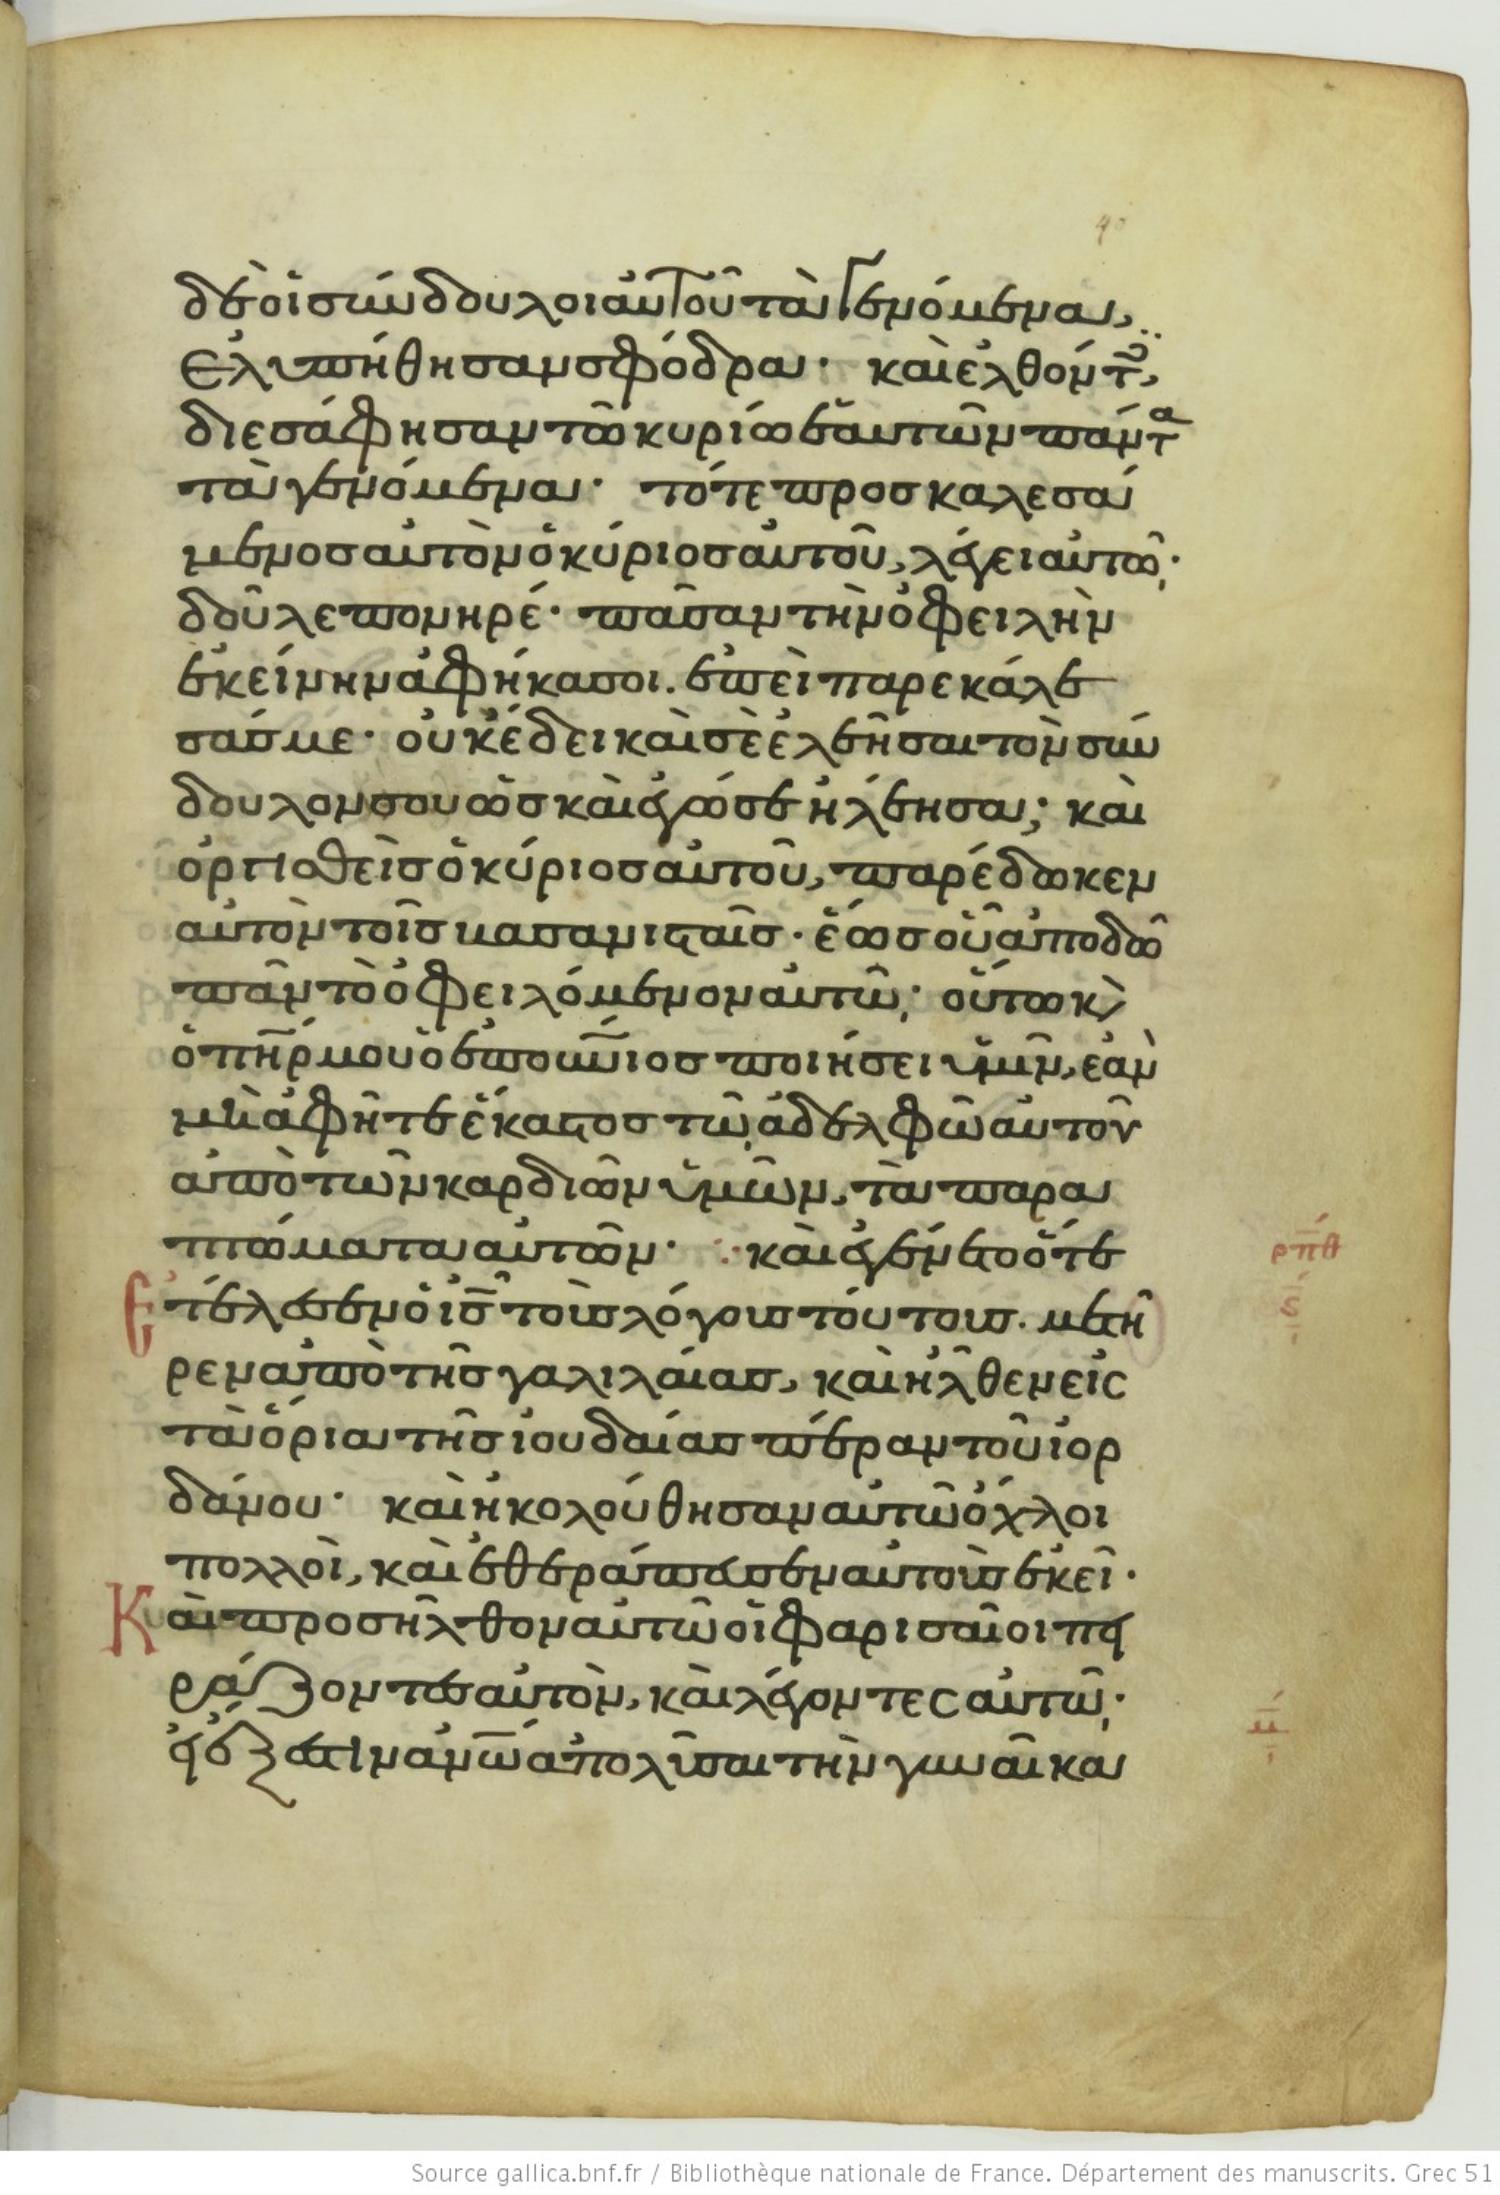 40
δὲ οἱ σύνδουλοι αὐτοῦ τὰ γενόμενα,
ἐλυπήθησαν σφόδρα· καὶ ἐλθόντ(ες),
διεσάφησαν τῶ κυρίω ἑαυτῶν πάντα
τὰ γενόμενα· τότε προσκαλεσά
μενος αὐτὸν ὁ κύριος αὐτοῦ, λέγει αὐτῶ·
δοῦλε πονηρέ· πᾶσαν τὴν ὀφειλὴν
ἐκείνην ἀφήκα σοι. ἐπεὶ παρεκάλε
σάς με· οὐκ ἔδει καὶ σὲ ἐλεῆσαι τὸν σύν
δουλον σου ὡς καὶ ἐγώ σε ἠλέησα; καὶ
ὀργισθεὶς ὁ κύριος αὐτοῦ, παρέδωκεν
αὐτὸν τοῖς βασανισταῖς· ἕως οὗ ἀποδῶ
πᾶν τὸ ὀφειλόμενον αὐτῶ· οὕτω κ(αὶ)
ὁ πηρ μου ὁ ἐπουνιος ποιήσει ὑμῖν, ἐὰν
μὴ ἀφῆτε ἕκαστος τῷ ἀδελφῶ αὐτοῦ
ἀπὸ τῶν καρδιῶν ὑμῶν, τὰ παρα
πτώματα αὐτῶν· καὶ ἐγένετο ὅτε
ρπθ
ἐτέλεσεν ὁ ις τοὺς λόγους τούτους. μετῆ
ς
ρεν ἀπὸ τῆς γαλιλαίας, καὶ ἦλθεν εἰς
τὰ ὅρια τῆς ἰουδαίας πέραν τοῦ ἰορ
δάνου· καὶ ἠκολούθησαν αὐτῶ ὄχλοι
πολλοὶ, καὶ ἐθεράπευσεν αὐτοὺς ἐκεῖ·
Καὶ προσῆλθον αὐτῶ οἱ φαρισαῖοι πει
ράζοντες αὐτὸν, καὶ λέγοντες αὐτῶ·
εἰ ἔξεστιν ανω ἀπολῦσαι τὴν γυναῖκα
Source gallica.bnf.fr / Bibliothèque nationale de France. Département des manuscrits. Grec 51